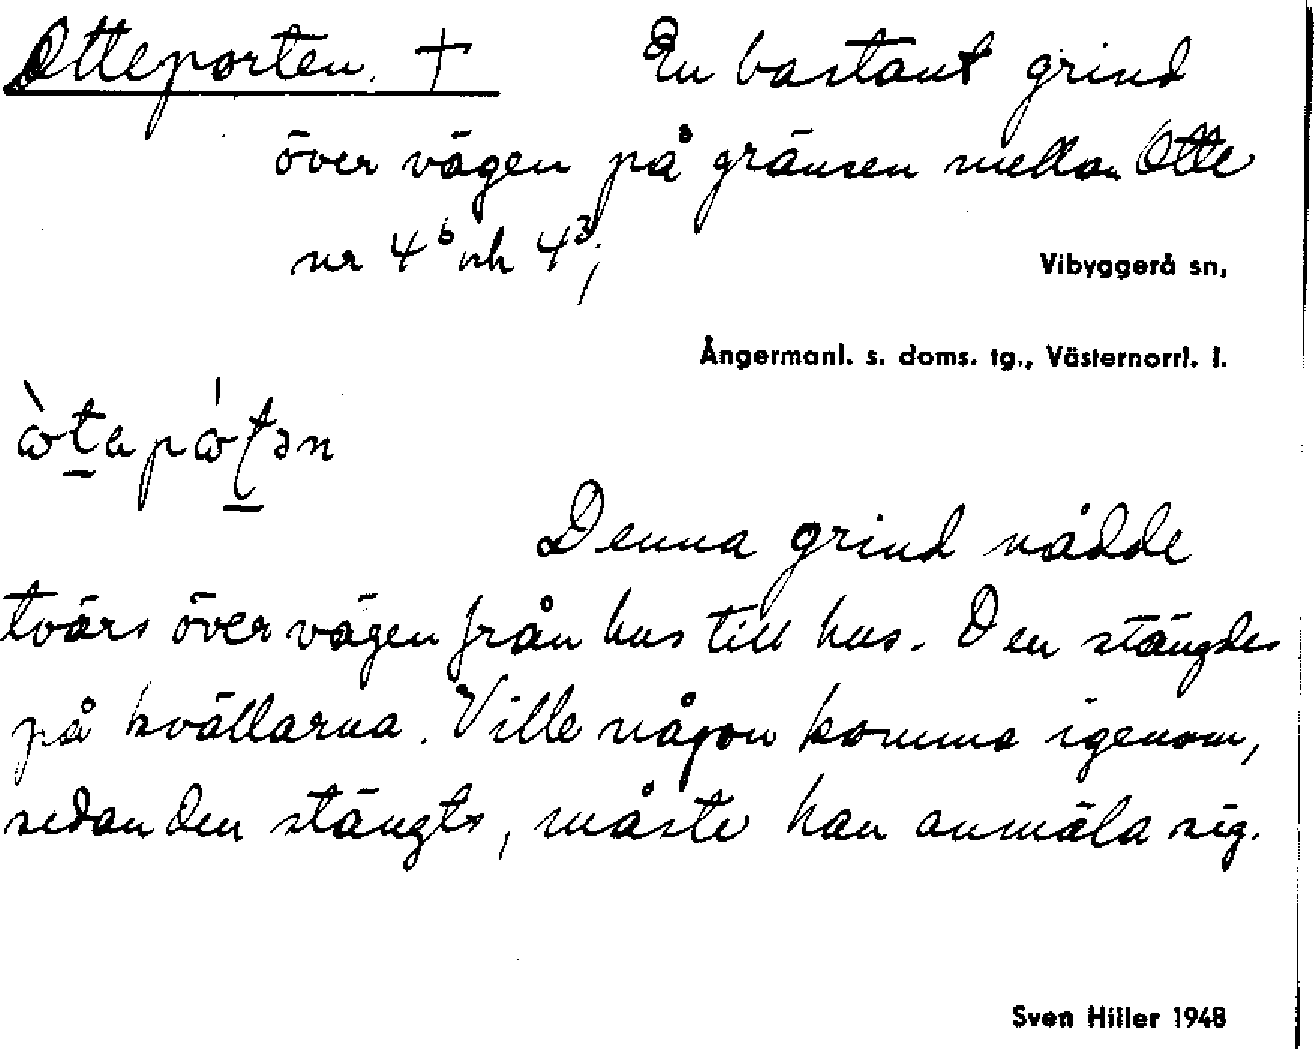 Otteporten. † En bastant grind
över vägen på gränsen mellan Otte
nr 4⁶ och 4³;
Vibyggerå sn,
Ångermanl. s. doms. tg., Västernorrl. l.
ὼtapώʈən
Denna grind nådde
tvärs över vägen från hus till hus. Den stängdes
på kvällarna. Ville någon komma igenom,
sedan den stängts, måste han anmäla sig.
Sven Hiller 1948